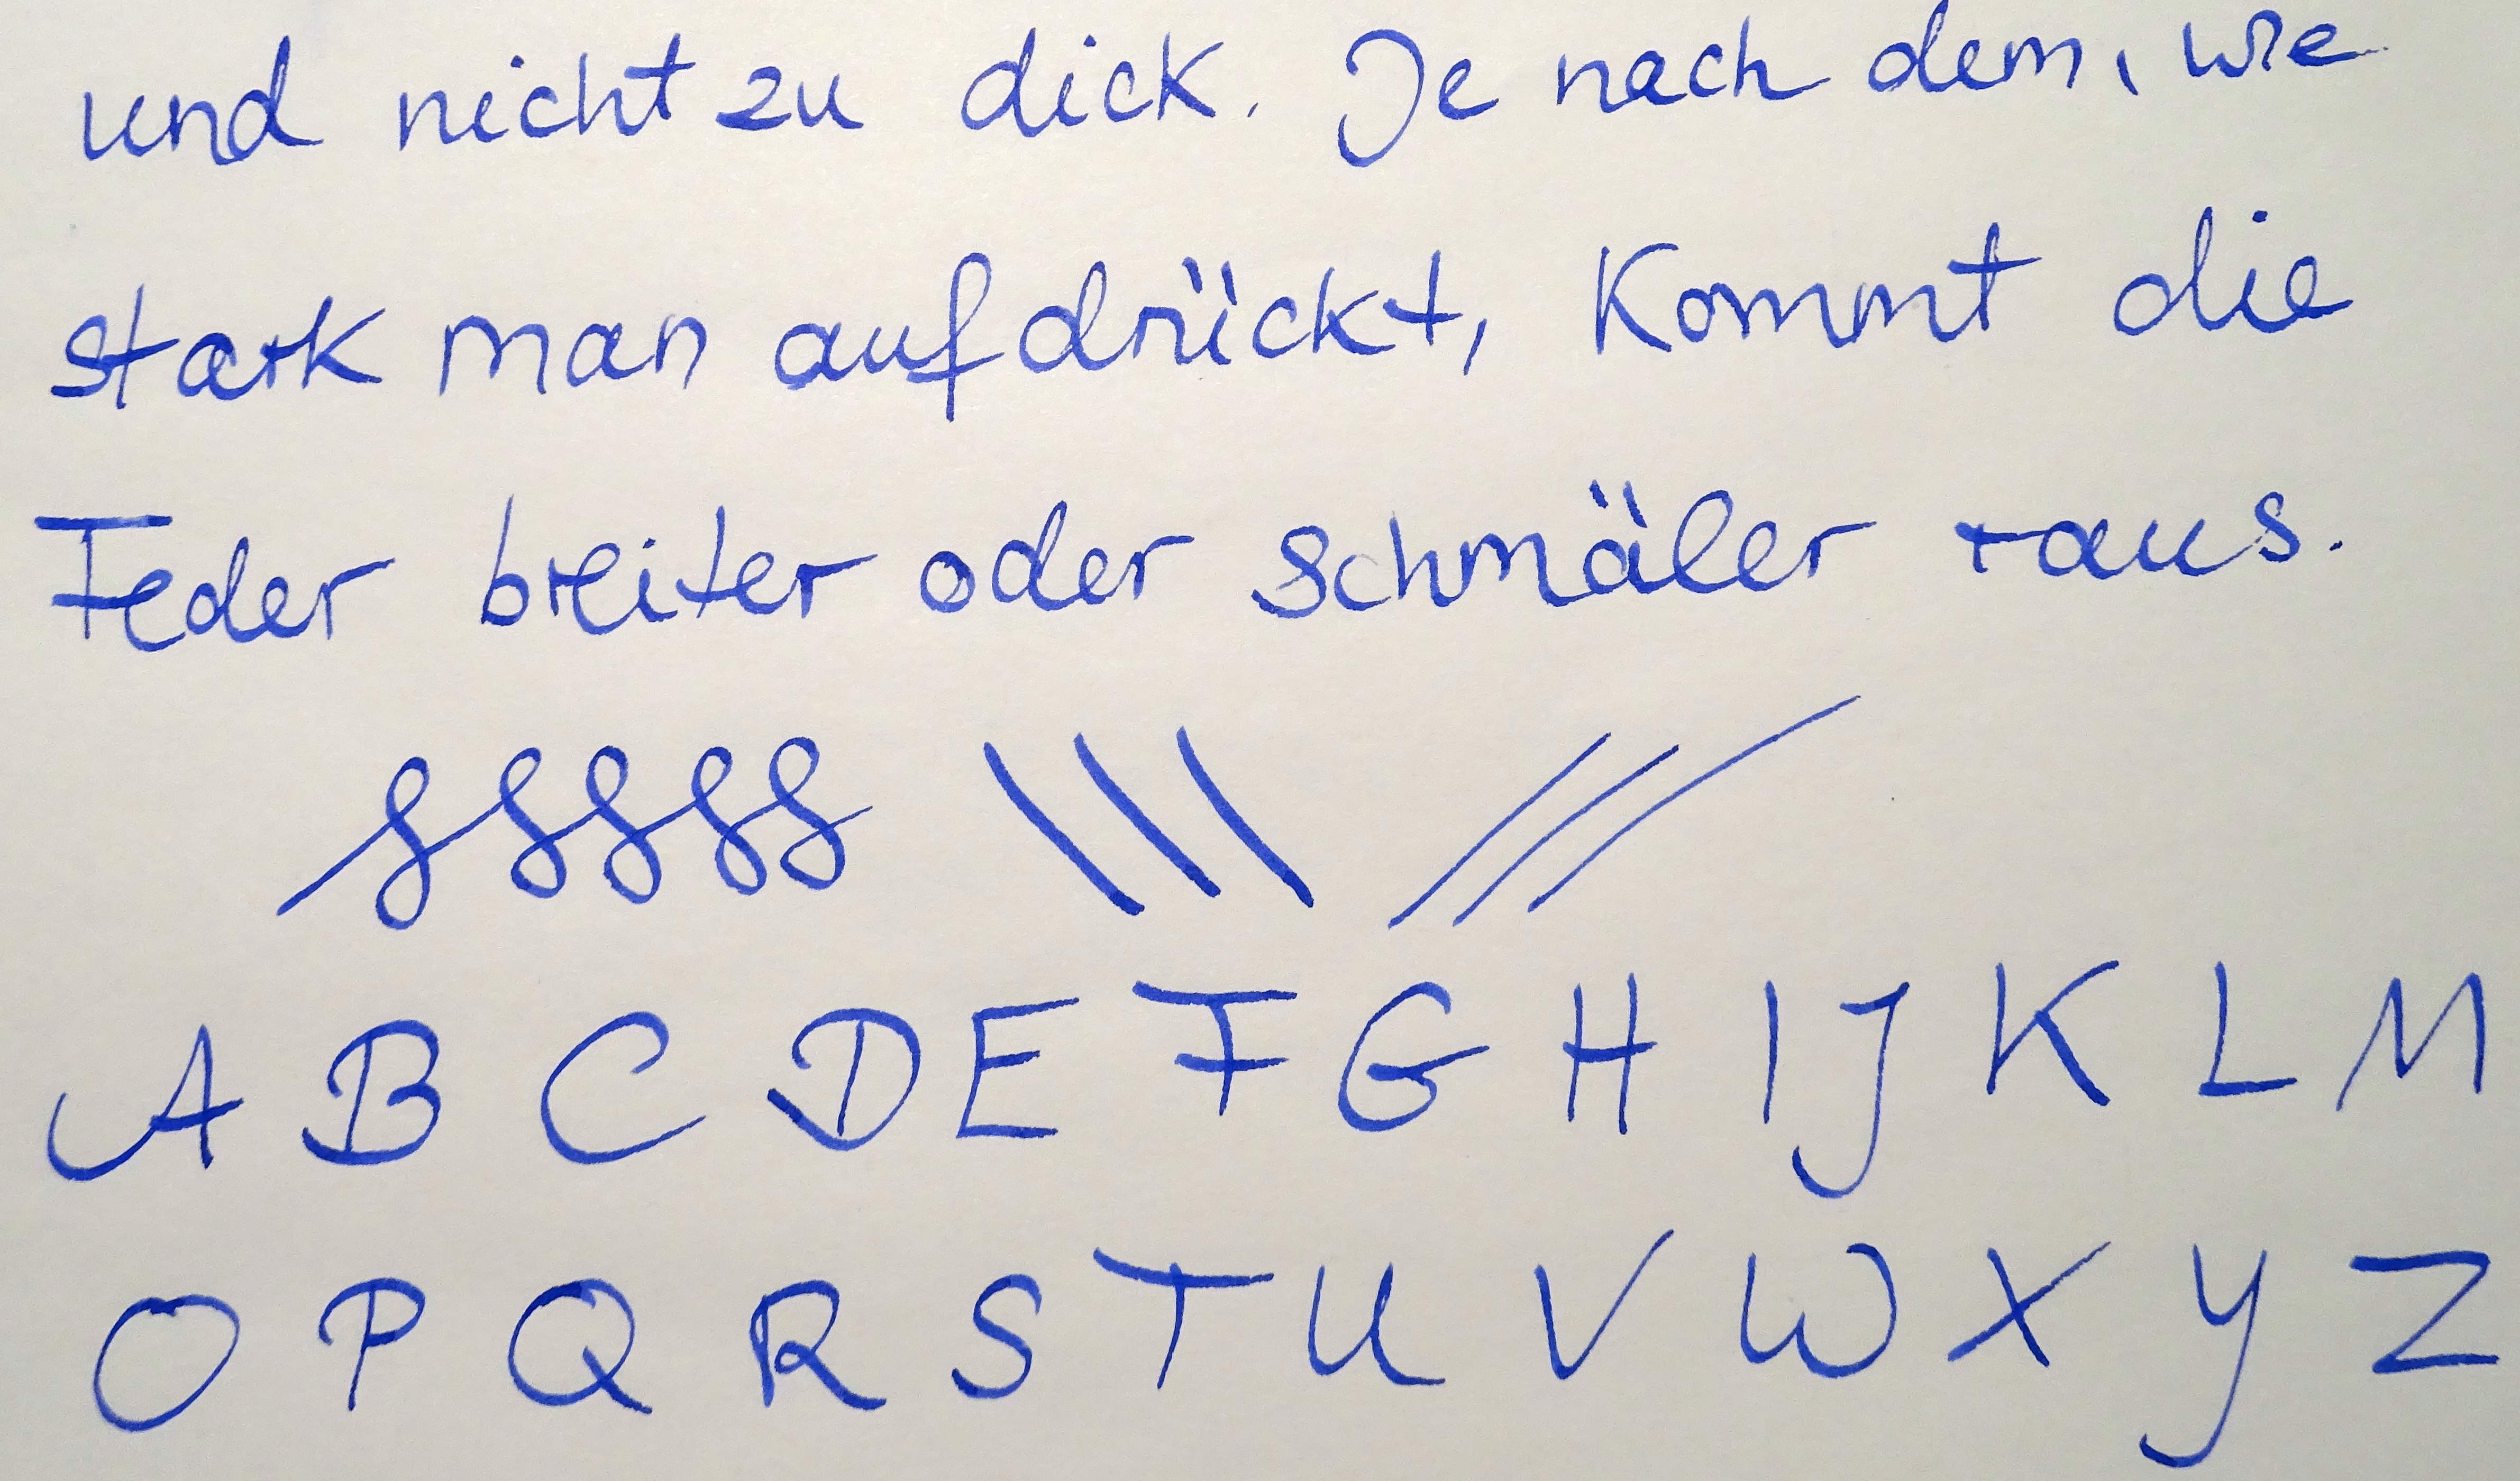 und nicht zu dick. Je nach dem, wie
stark man aufdrückt, kommt die
Feder breiter oder schmäler raus.
A B C D E F G H I J K L M
O P Q R S T U V W X Y Z